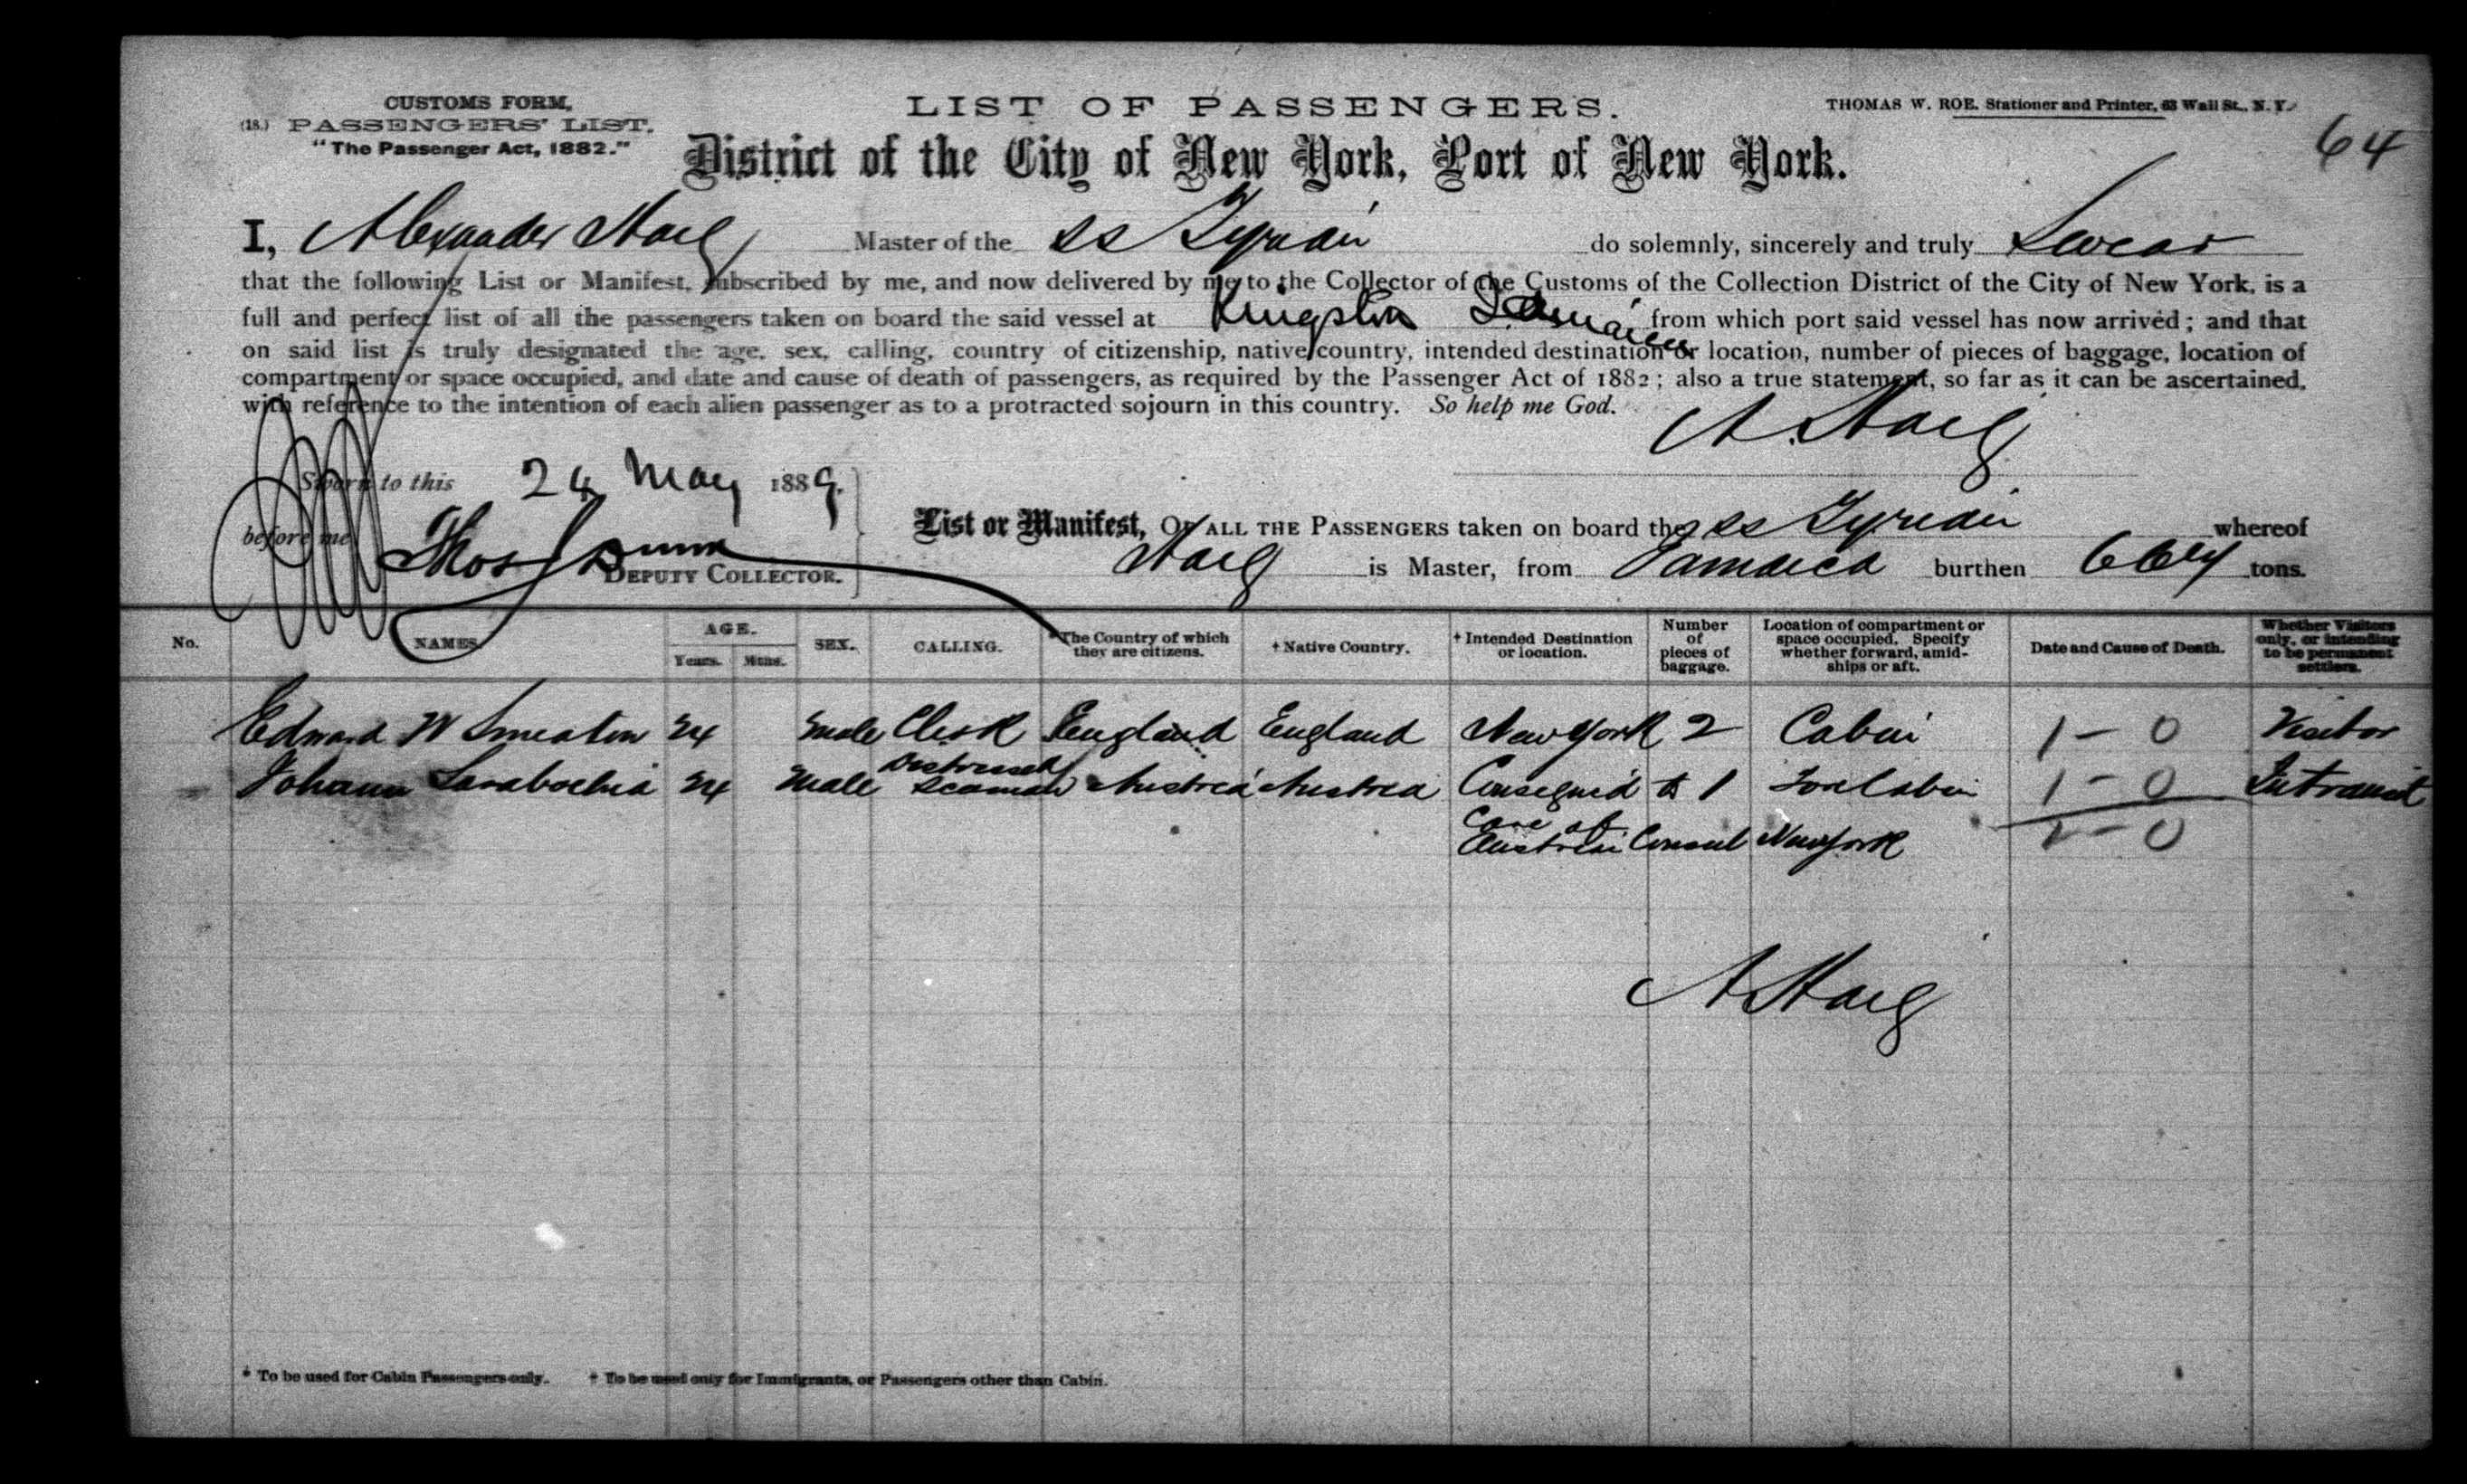 CUSTOMS FORM,
(18.) PASSENGERS' LIST.
"The Passenger Act, 1882."
LIST OF PASSENGERS.
THOMAS W. ROE, Stationer and Printer, 63 Wall St., N. Y.
64
District of the City of New York, Port of New York.
I, Alexander Haig Master of the SS Tyrian do solemnly, sincerely and truly Swear
that the following List or Manifest, subscribed by me, and now delivered by me to the Collector of the Customs of the Collection District of the City of New York, is a
full and perfect list of all the passengers taken on board the said vessel at Kingston Jamaica from which port said vessel has now arrived; and that
on said list is truly designated the age, sex, calling, country of citizenship, native country, intended destination or location, number of pieces of baggage, location of
compartment or space occupied, and date and cause of death of passengers, as required by the Passenger Act of 1882; also a true statement, so far as it can be ascertained,
with reference to the intention of each alien passenger as to a protracted sojourn in this country. So help me God.
A. Haig
Sworn to this 24 May 1889.
before me Thos Dunn
DEPUTY COLLECTOR.
List or Manifest, OF ALL THE PASSENGERS taken on board the SS Tyrian whereof
Haig is Master, from Jamaica burthen tons.
No. NAMES. AGE. Years. Mths. SEX. CALLING. *The Country of which they are citizens. †Native Country. †Intended Destination or location. Number of pieces of baggage. Location of compartment or space occupied. Specify whether forward, amidships or aft. Date and Cause of Death. Whether Visitors only, or intending to be permanent settlers.
Edward W Smeaton 24 Male Clerk England England New York 2 Cabin 1 - 0 Visitor
Johann 24 Male Distressed Seaman Austria Austria Consigned to 1 Fore Cabin 1 - 0 In transit
Care of 2 - 0
Austrian Consul New York
A Haig
* To be used for Cabin Passengers only. † To be used only for Immigrants, or Passengers other than Cabin.